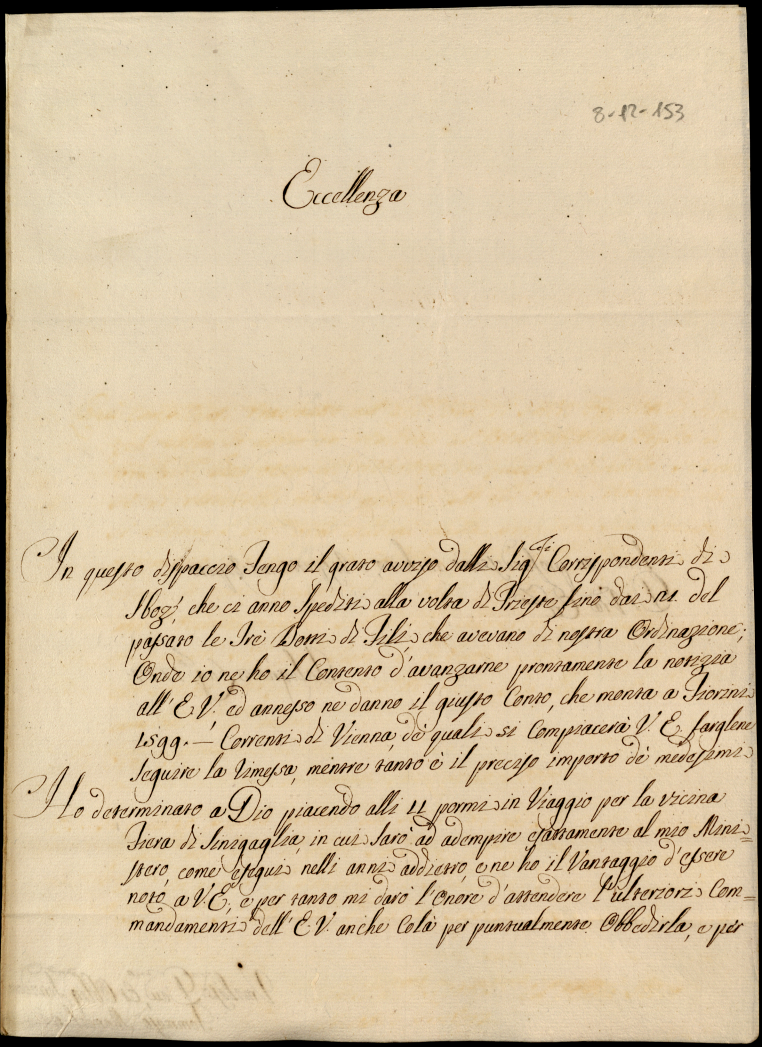 8-12-153
Eccellenza
In questo dispaccio Tengo il grato avviso dalli Sig.ri Corrispondenti di
che ci anno Spediti alla volta di Trieste sino dai 21. del
passato le Tre Botti di Fili che avevano di nostra Ordinazione;
Onde io ne ho il Contento d'avanzarne prontamente la notizia
all'E.V. ed annesso ne danno il giusto Conto, che monta a Fiorini
1599.— Correnti di Vienna, de quali si Compiacerà V.E. fargliene
seguire la rimessa, mentre tanto è il preciso importo de medesimi
Ho determinato a Dio piacendo alli 11 pormi in Viaggio per la vicina
Fiera di Sinigaglia, in cui Sarò ad adempire esattamente al mio Mini=
stero, come eseguii nelli anni addietro, e ne ho il Vantaggio d'essere
noto a V.E. e per tanto mi darò l'onore d'attendere l'ulteriori Com=
mandamenti dell'E.V. anche Colà per puntualmente Obbedirla, e per